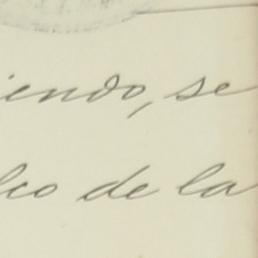 iendo, se
lco de la